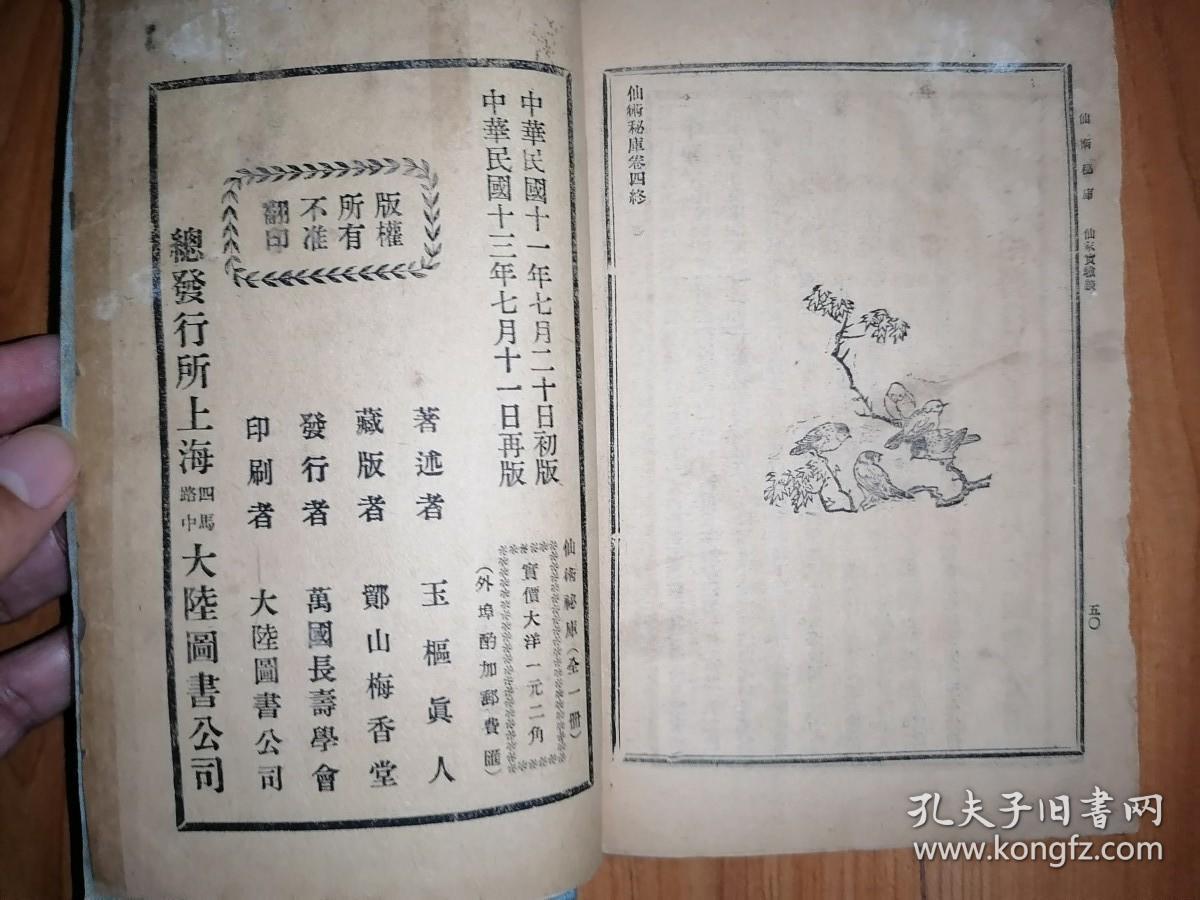 仙術秘庫 仙家實驗談
五〇
仙術秘庫卷四終
仙術祕庫(全一冊)
實價大洋一元二角
(外埠酌加郵費匯)
中華民國十一年七月二十日初版
中華民國十三年七月十一日再版
著述者 玉樞眞人
藏版者 鄮山梅香堂
發行者 萬國長壽學會
印刷者 大陸圖書公司
版權
所有
不准
翻印
總發行所上海四馬路中大陸圖書公司
孔夫子旧书网
www.kongfz.com